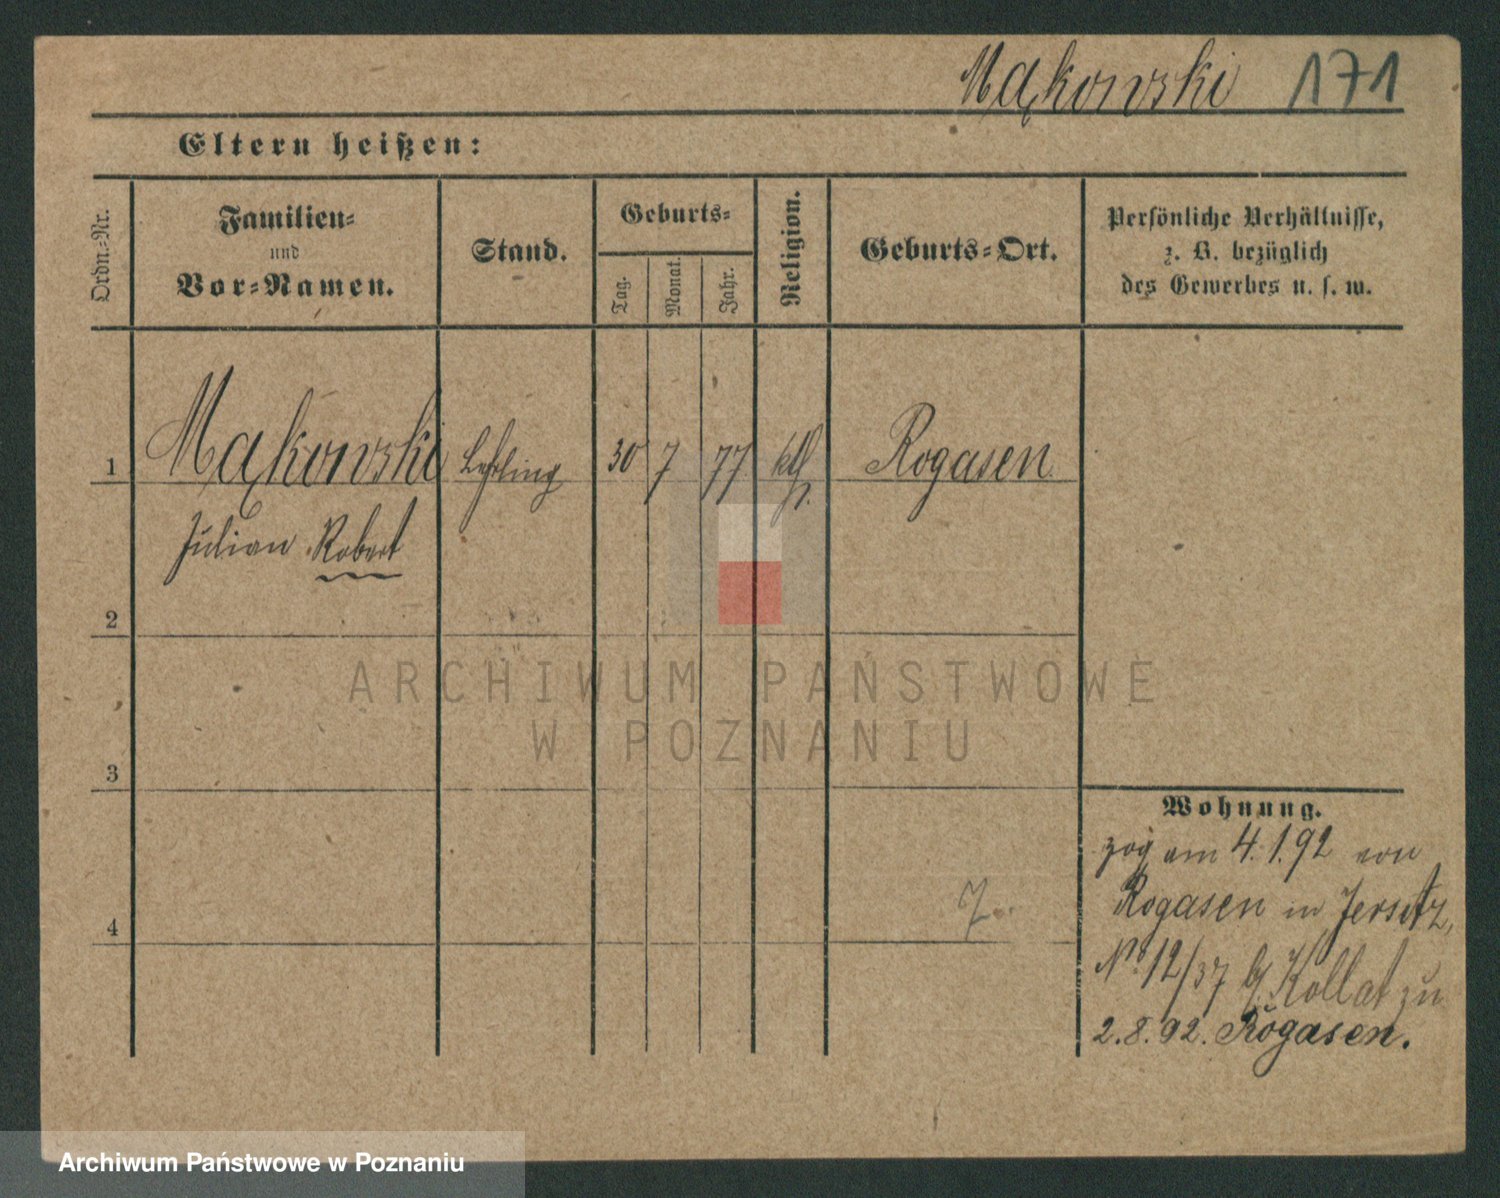 Mąkowski 171
Eltern heißen:
Ordn.-Nr.
Familien-
und
Vor-Namen.
Stand.
Geburts-
Tag.
Monat.
Jahr.
Religion.
Geburts-Ort.
Persönliche Verhältnisse,
z. B. bezüglich
des Gewerbes u. s. w.
1 Mąkowski Lehrling 30 7 77 kth. Rogasen
Julian Robert
2
3
4
Wohnung.
zog am 4.1.92 von
Rogasen in Jersitz,
No 12/37 b/ Kollat zu
2.8.92. Rogasen.
ARCHIWUM PAŃSTWOWE
W POZNANIU
Archiwum Państwowe w Poznaniu